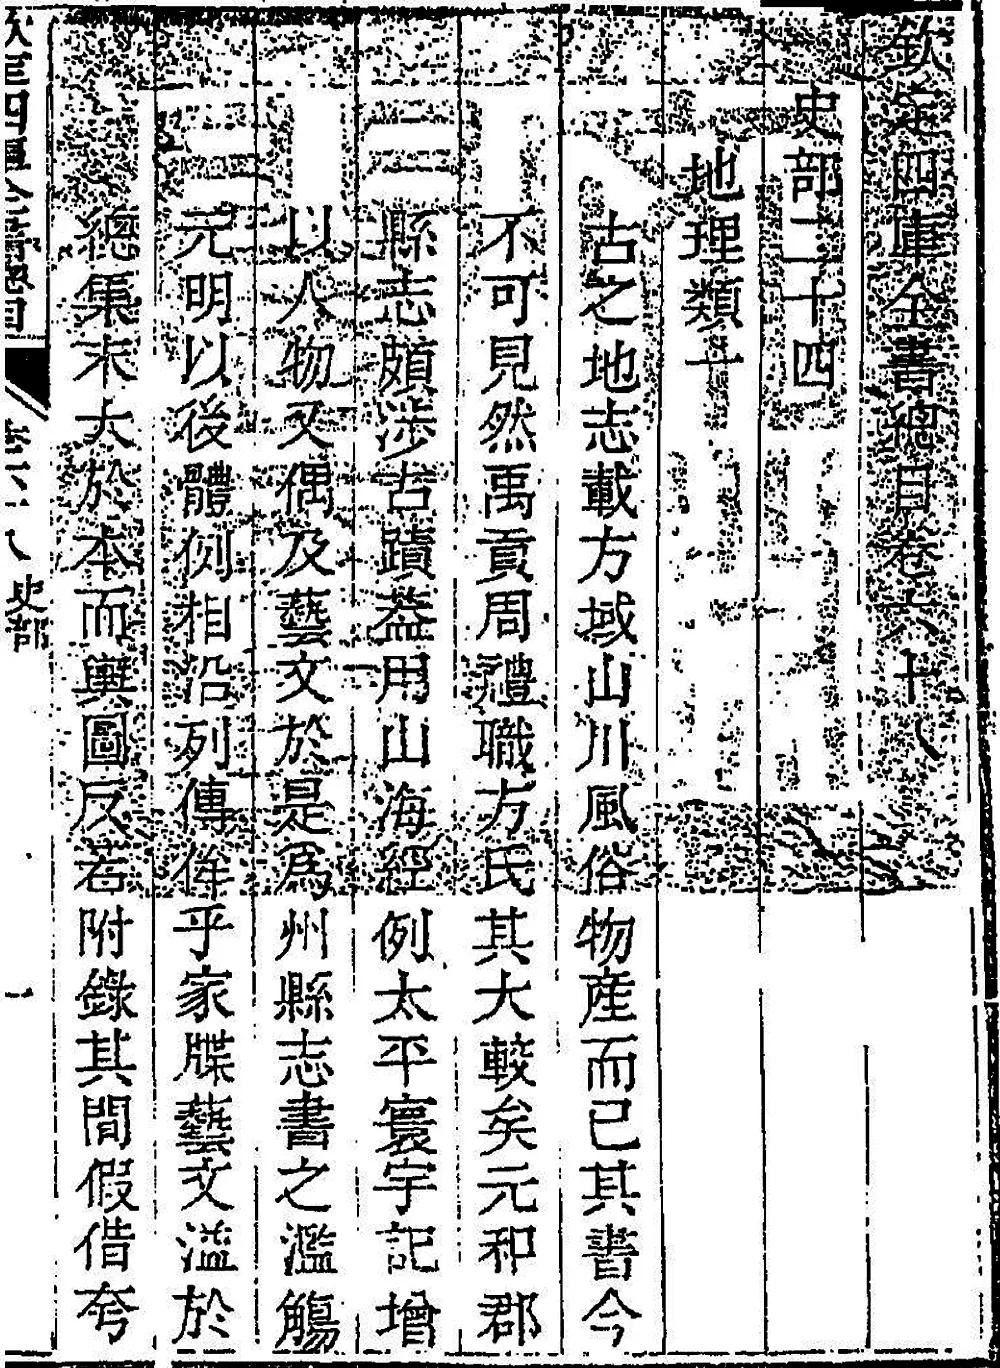 欽定四庫全書總目卷六十八
史部二十四
地理類一
古之地志載方域山川風俗物産而已其書今
不可見然禹貢周禮職方氏其大較矣元和郡
縣志頗涉古蹟葢用山海經例太平寰宇記增
以人物又偶及藝文於是爲州縣志書之濫觴
元明以後體例相沿列傳侔乎家牒藝文溢於
總集末大於本而輿圖反若附錄其間假借夸
欽定四庫全書總目
卷六十八 史部
一